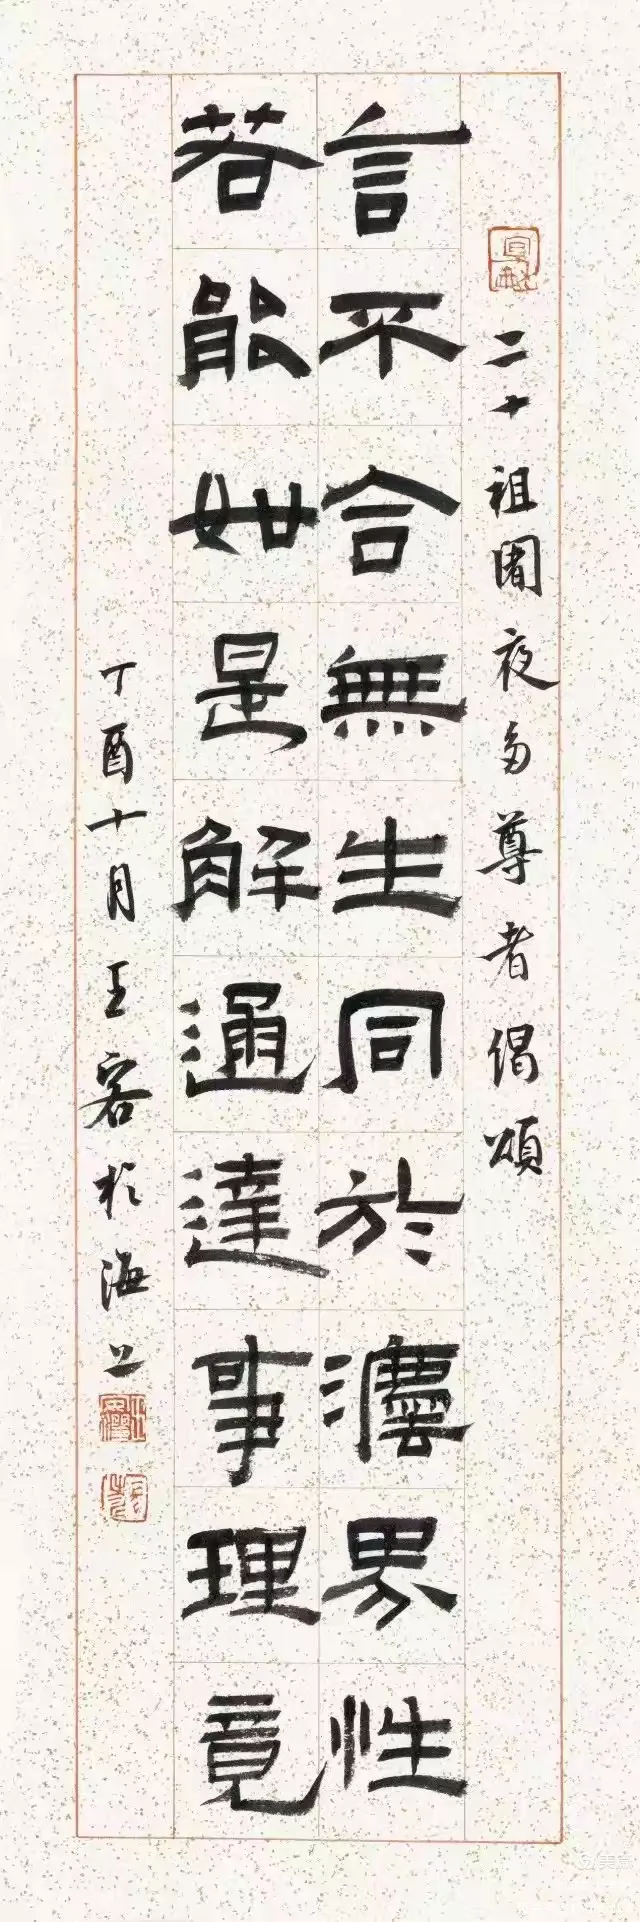 二十祖闍夜多尊者偈頌
言不合無生同於灋界性
若能如是解通達事理竟
丁酉十月王客於海上